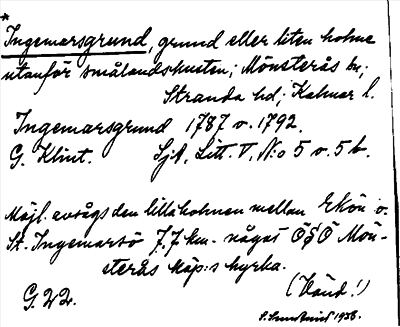 *
Ingemarsgrund, grund eller liten holme
utanför smålandskusten; Mönsterås sn;
Stranda hd; Kalmar l.
Ingemarsgrund 1787 o. 1792.
G. Klint. SjA, Litt. V, N:o 5 o. 5 b.
Möjl. avsågs den lilla holmen mellan Ekön o.
St. Ingemarsö 7,7 km. något ÖSÖ Mön-
sterås köp:s kyrka.
(Vänd!)
G. 22.
1938.